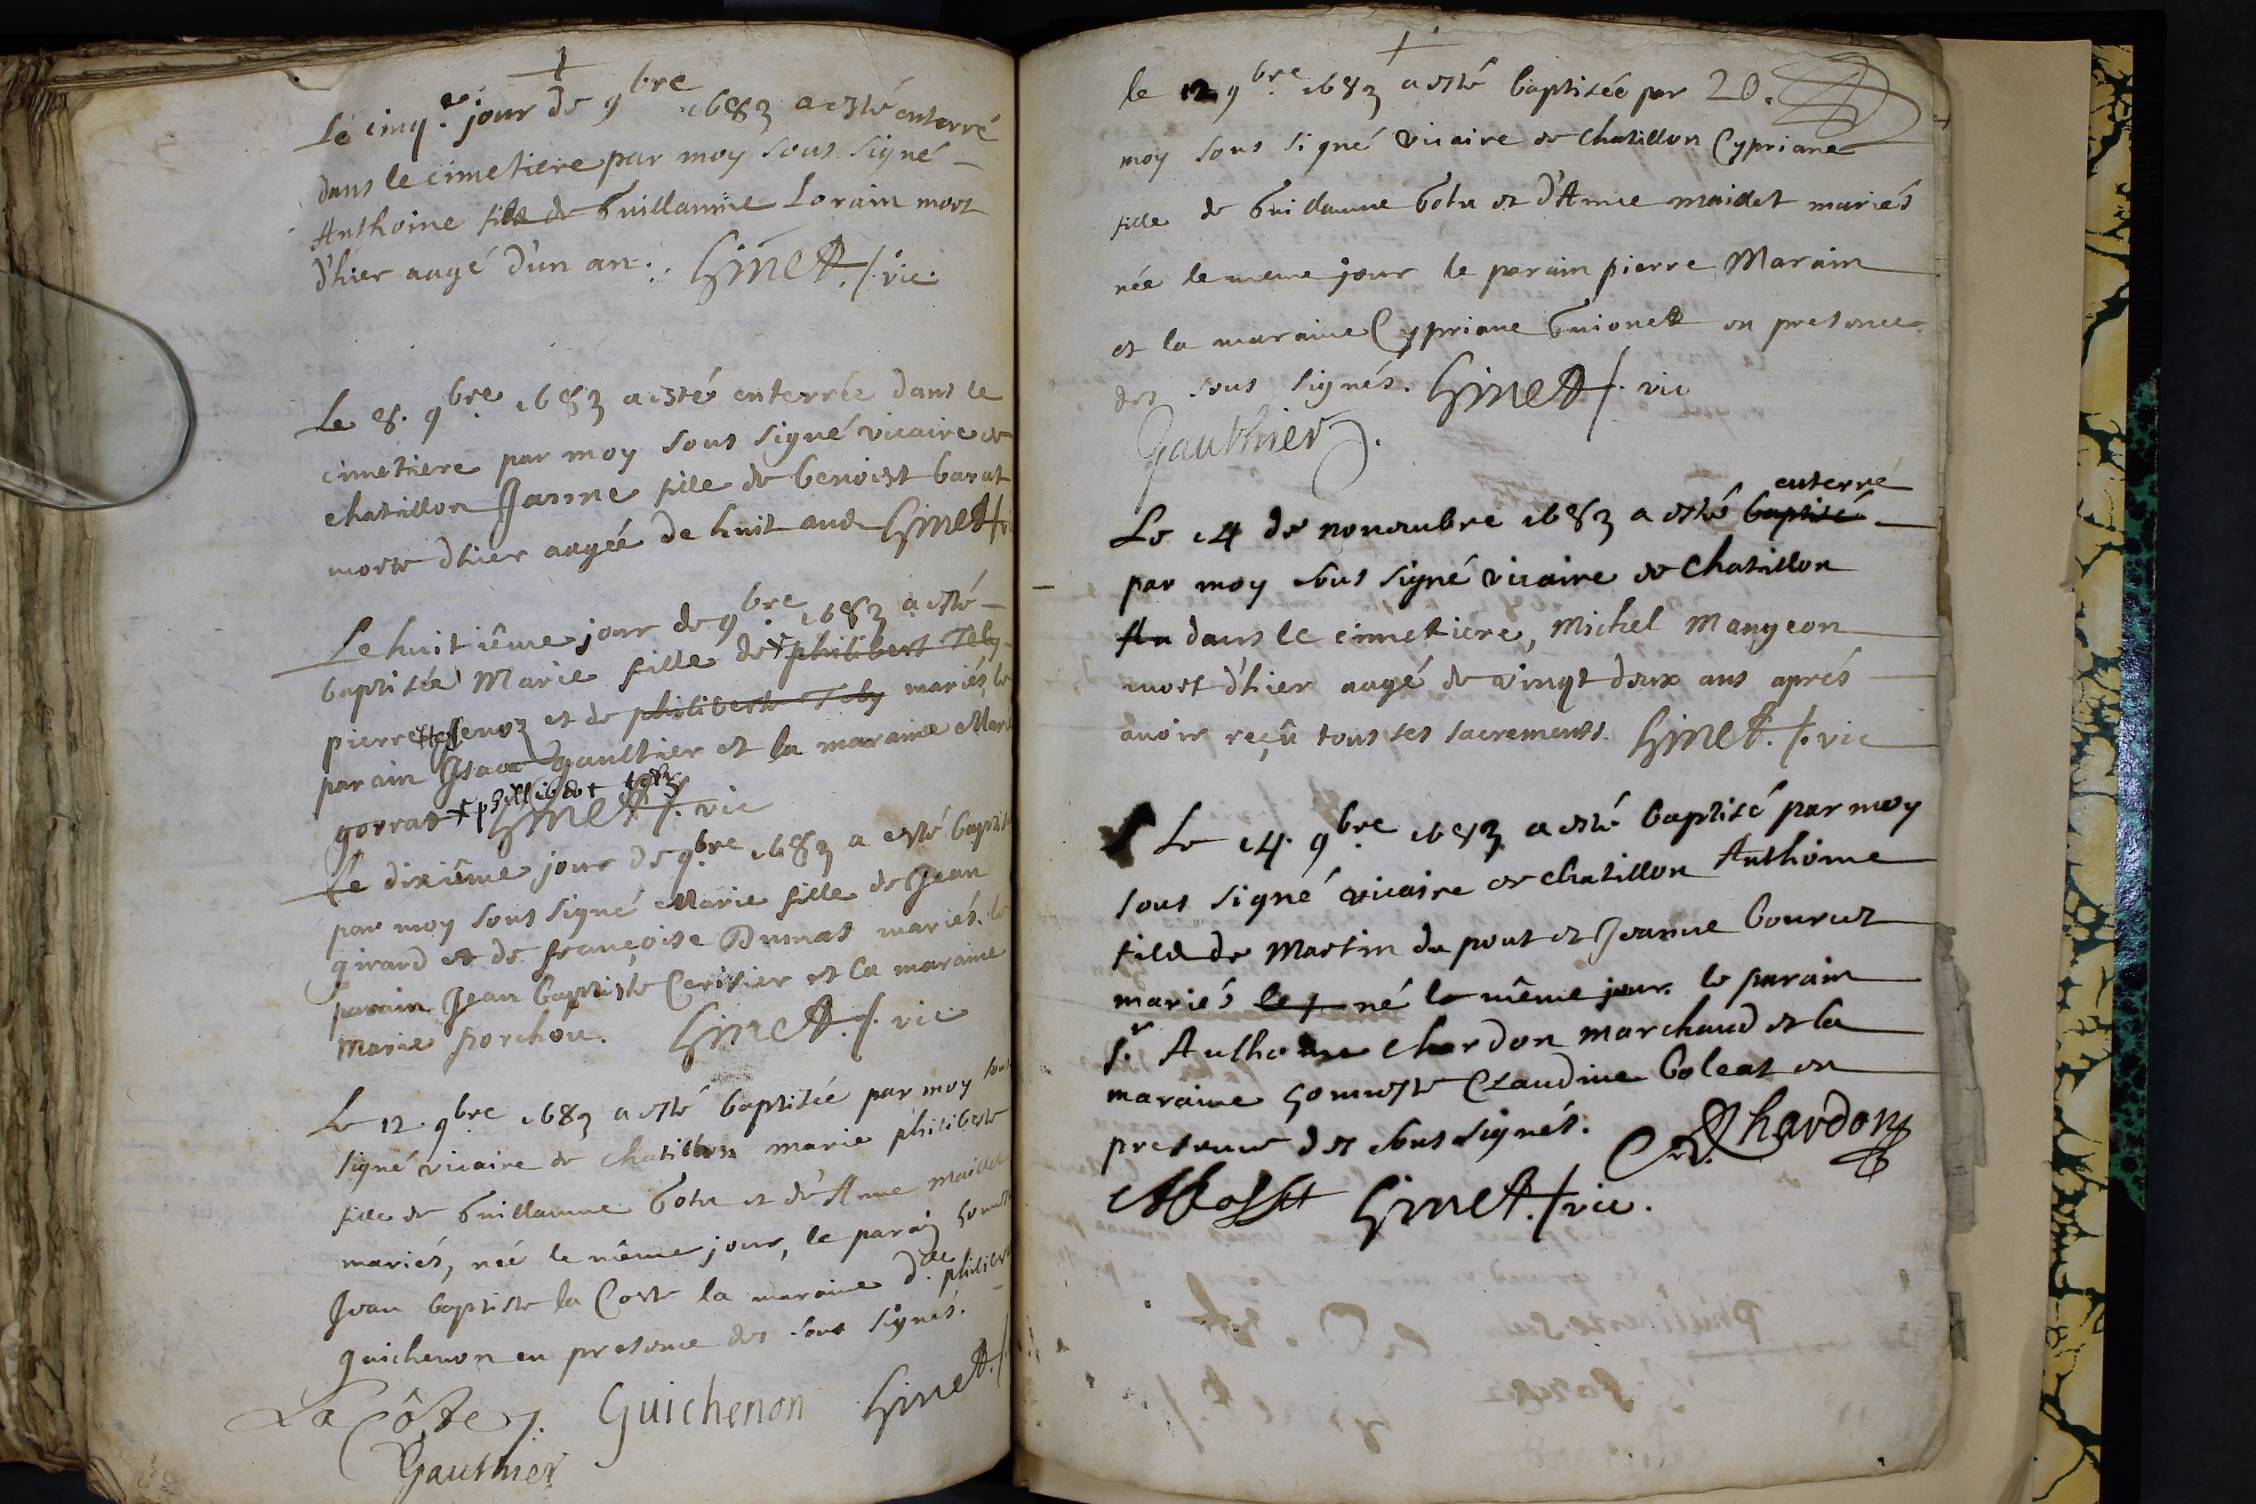 Le cinq.e jour de 9bre 1683 a esté enterré
dans le cimetiere par moy sous signé
Anthoine fils de Guillaume Lorain mort
d'hier aagé d'un an. Ginet /. vic.
Le 8. 9bre 1683 a esté enterrée dans le
cimetiere par moy sous signé vicaire de
chatillon Janne fille de benoist barat
morte d'hier aagée de huit ans Ginet
Le huitiême jour de 9bre 1683 a esté
baptisée Marie fille de + philibert Teby
pierrette et de philiberte Teby mariés, le
parain Isaac gaultier et la maraine Marie
gorrat + phillibert
Ginet /. vic
Le dixiême jour de 9bre 1683 a esté baptisé
par moy sous signé Marie fille de Jean
girard et de françoise Dumas mariés. le
parain Jean baptiste Cerisier et la maraine
Marie porchou. Ginet /. vic.
Le 12. 9bre 1683 a esté baptisée par moy sous
signé vicaire de chatillon marie philiberte
fille de Guillaume Gotu et de Anne maillet
mariés, née le même jour, le parain
Jean baptiste la Coste la maraine d.lle philiberte
guichenon en presence des sous signés.
La Côste Guichenon Ginet /
Gauthier
le 12 9bre 1683 a esté baptisée par 20.
moy sous signé vicaire de Chatillon Cypriane
fille de Guillaume Gotu et d'Anne maidet mariés
née le meme jour le parain pierre Marain
et la maraine Cypriane Guionet en presence
des sous signés. Ginet /. vic
Gauthier
enterré
Le 14 de novembre 1683 a esté baptisé
par moy sous signé vicaire de Chatillon
dans le cimetiere, Michel Mangeon
mort d'hier aagé de vingt deux ans aprés
avoir reçû tous ses sacrements. Ginet. /. vic
Le 14. 9bre 1683 a esté baptisé par moy
sous signé vicaire de chatillon Anthoine
fils de Martin du pont et Jeanne bouruet
mariés né le même jour. le parain
s.r Anthoine chardon marchand et la
maraine honneste Claudine boleat en
presence des sous signés. Chardon
Ginet. / vic.